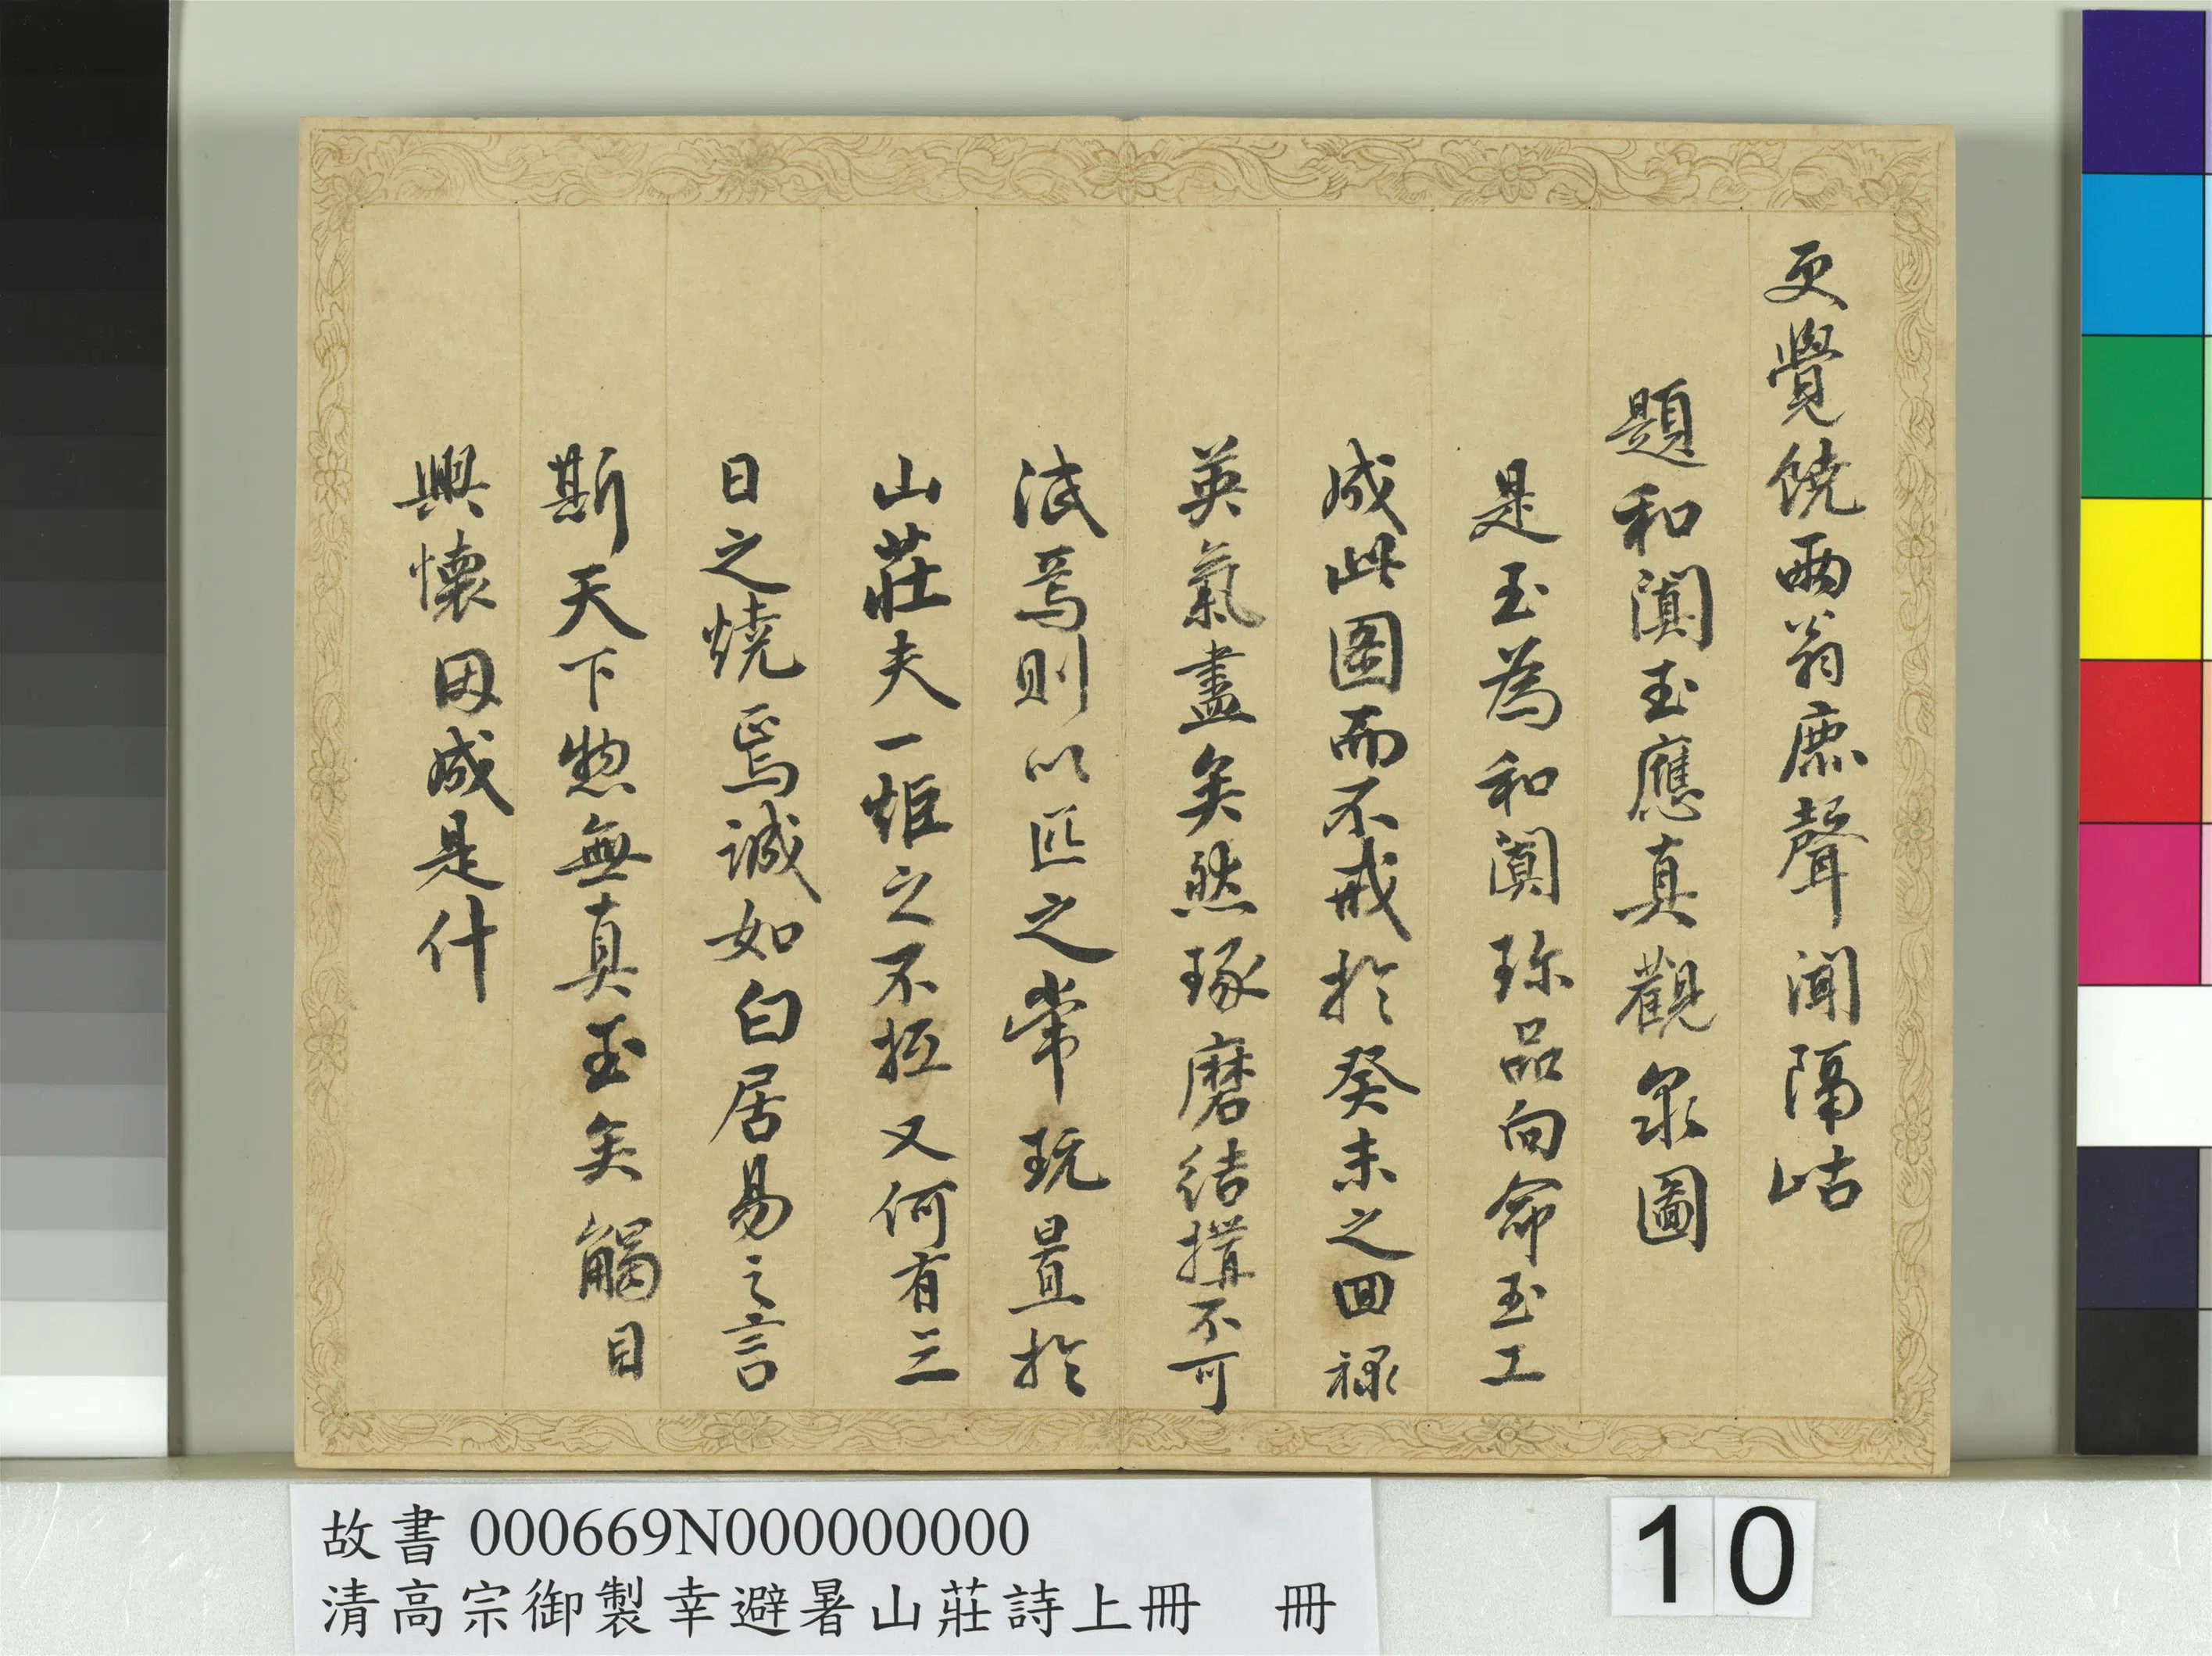 更覺饒兩翁麃聲聞隔岵
題和闐玉應真觀泉圖
是玉為和闐珎品向命玉工
成此图而不戒扵癸未之回禄
英氣盡矣然琢磨結搆不可
泯焉則以匹之常玩置扵
山莊夫一炬之不抵又何有三
日之燒焉誠如白居易之言
斯天下惣無真玉矣觸目
興懷因成是什
故書 000669N000000000
清高宗御製幸避暑山莊詩上冊 冊
10